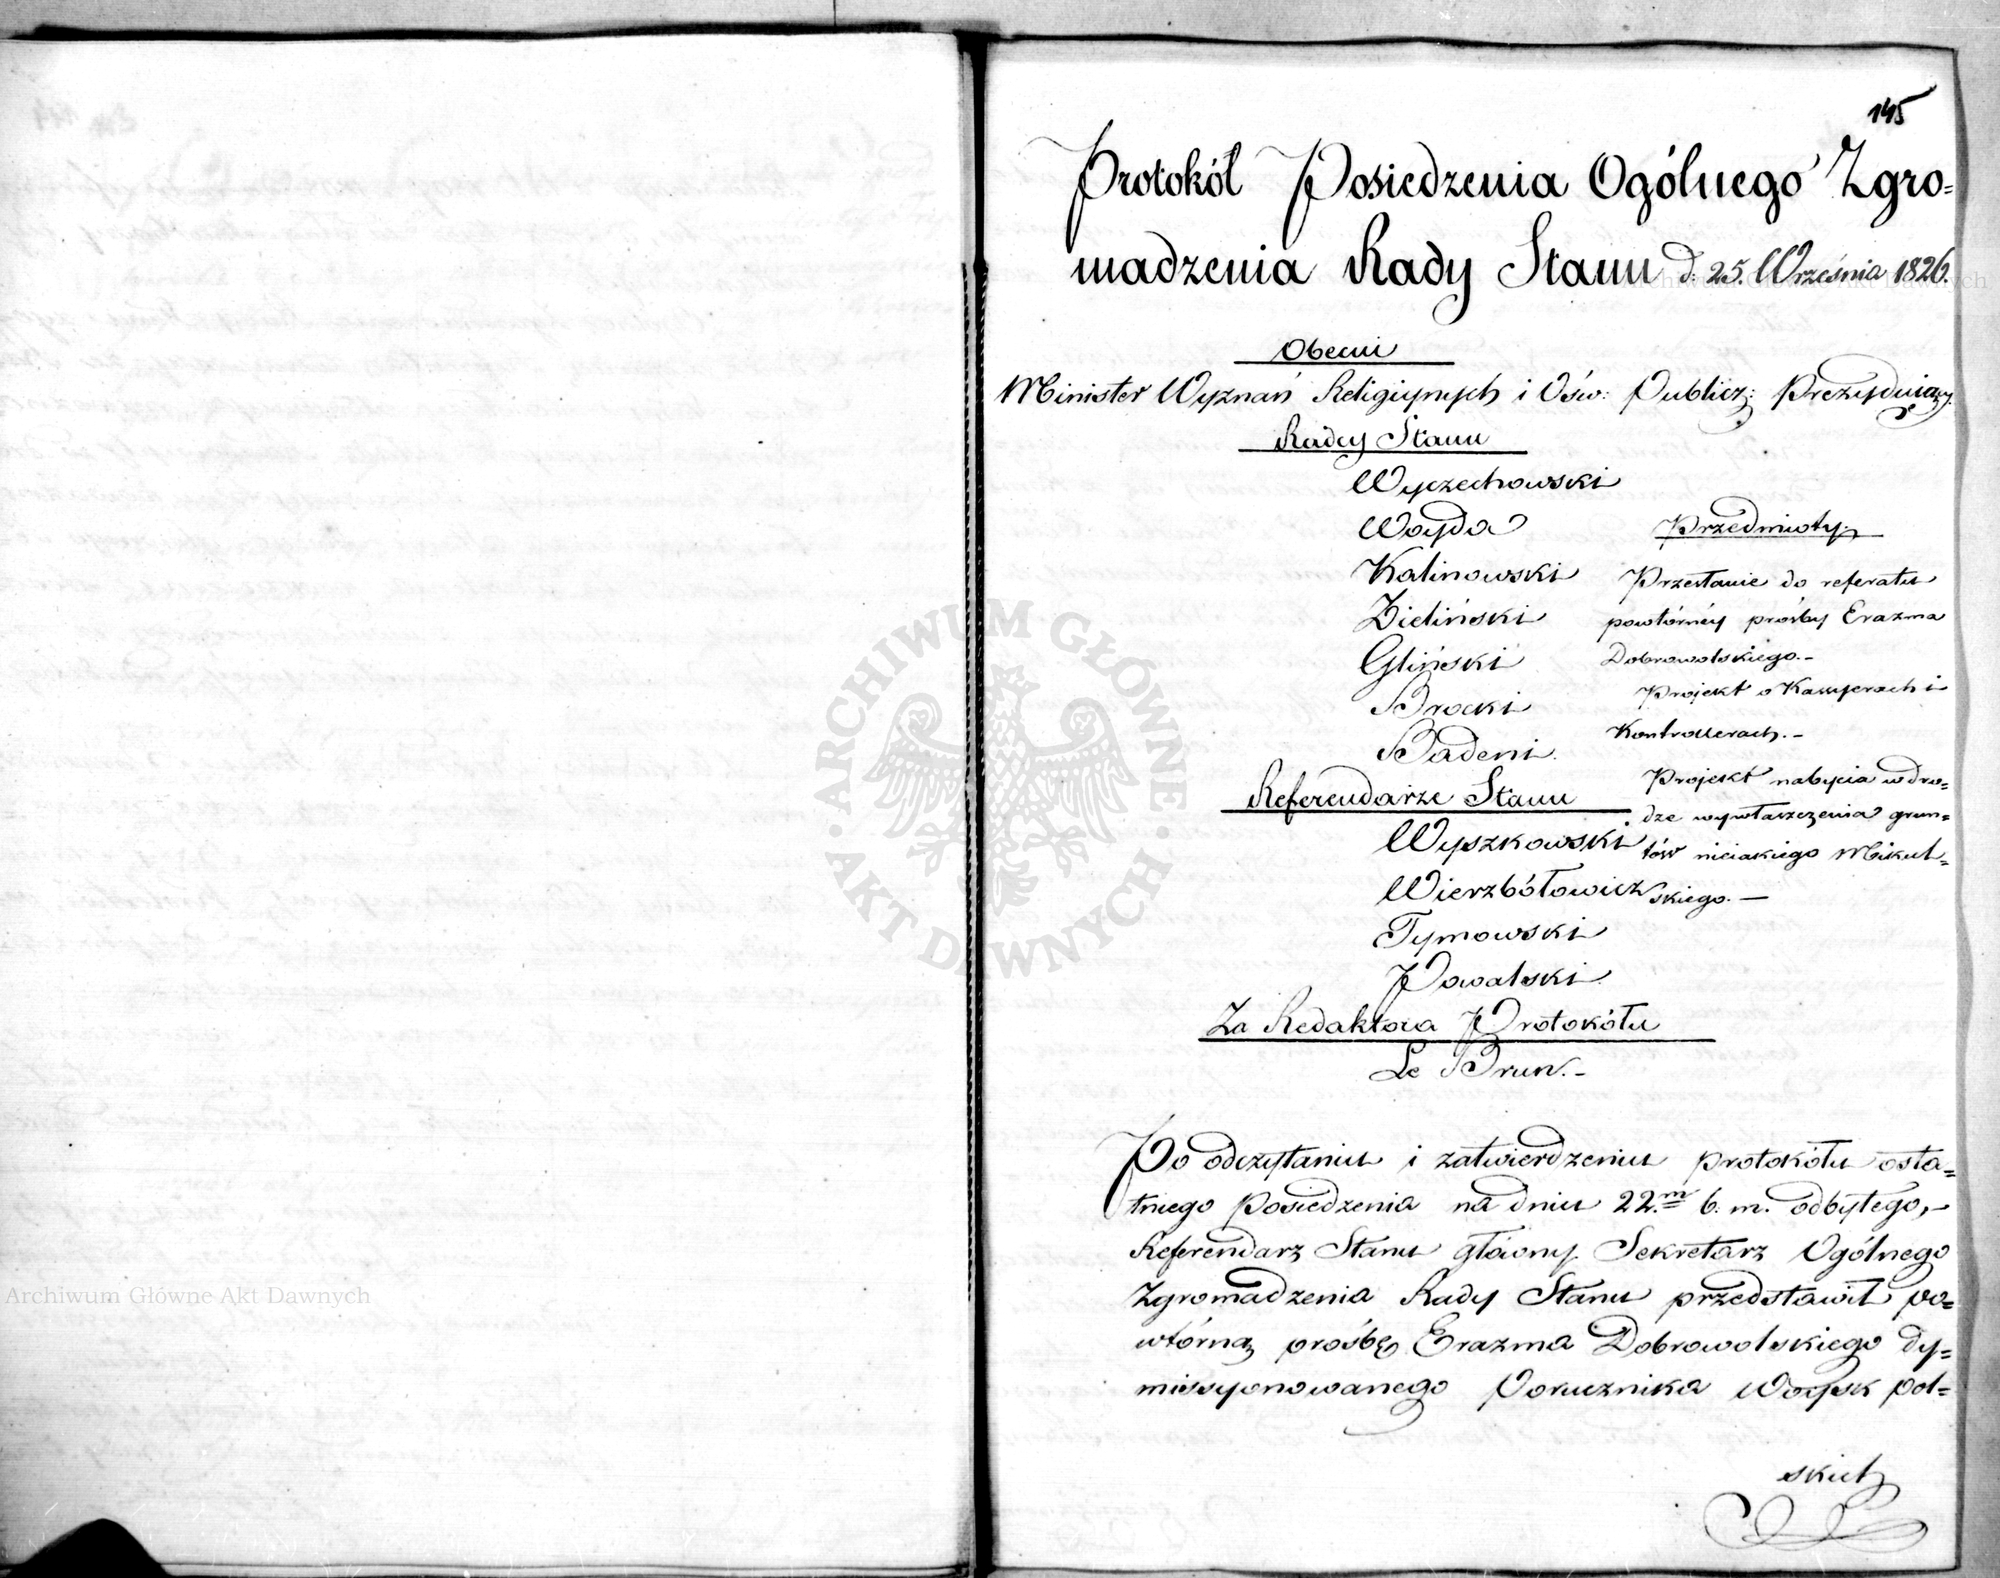 145
Protokół Posiedzenia Ogólnego Zgro=
madzenia Rady Stanu d. 25. Września 1826.
Obecni
Minister Wyznań Religiynych i Ośw: Publicz: Prezyduiący.
Radcy Stanu
Wyczechowski
Woyda
Kalinowski
Zieliński
Gliński
Brocki
Badeni.
Referendarze Stanu
Wyszkowski
Wierzbółowicz
Tymowski
Powalski.
Za Redaktora Protokółu
Le Brun.-
Przedmioty.
Przesłanie do referatu
powtórnéy prośby Erazma
Dobrowolskiego.-
Projekt o Kassyerach i
Kontrollerach.-
Projekt nabycia w dro=
dze wywłaszczenia grun=
tów nieiakiego Mikul=
skiego.-
Po odczytaniu i zatwierdzeniu protokółu osta=
tniego posiedzenia na dniu 22.m b. m. odbytego,-
Referendarz Stanu główny Sekretarz Ogólnego
Zgromadzenia Rady Stanu przedstawił po=
wtórną prośbę Erazma Dobrowolskiego dy=
missyonowanego Porucznika Woysk pol=
skich
ARCHIWUM GŁÓWNE
AKT DAWNYCH
Archiwum Główne Akt Dawnych
Archiwum Główne Akt Dawnych